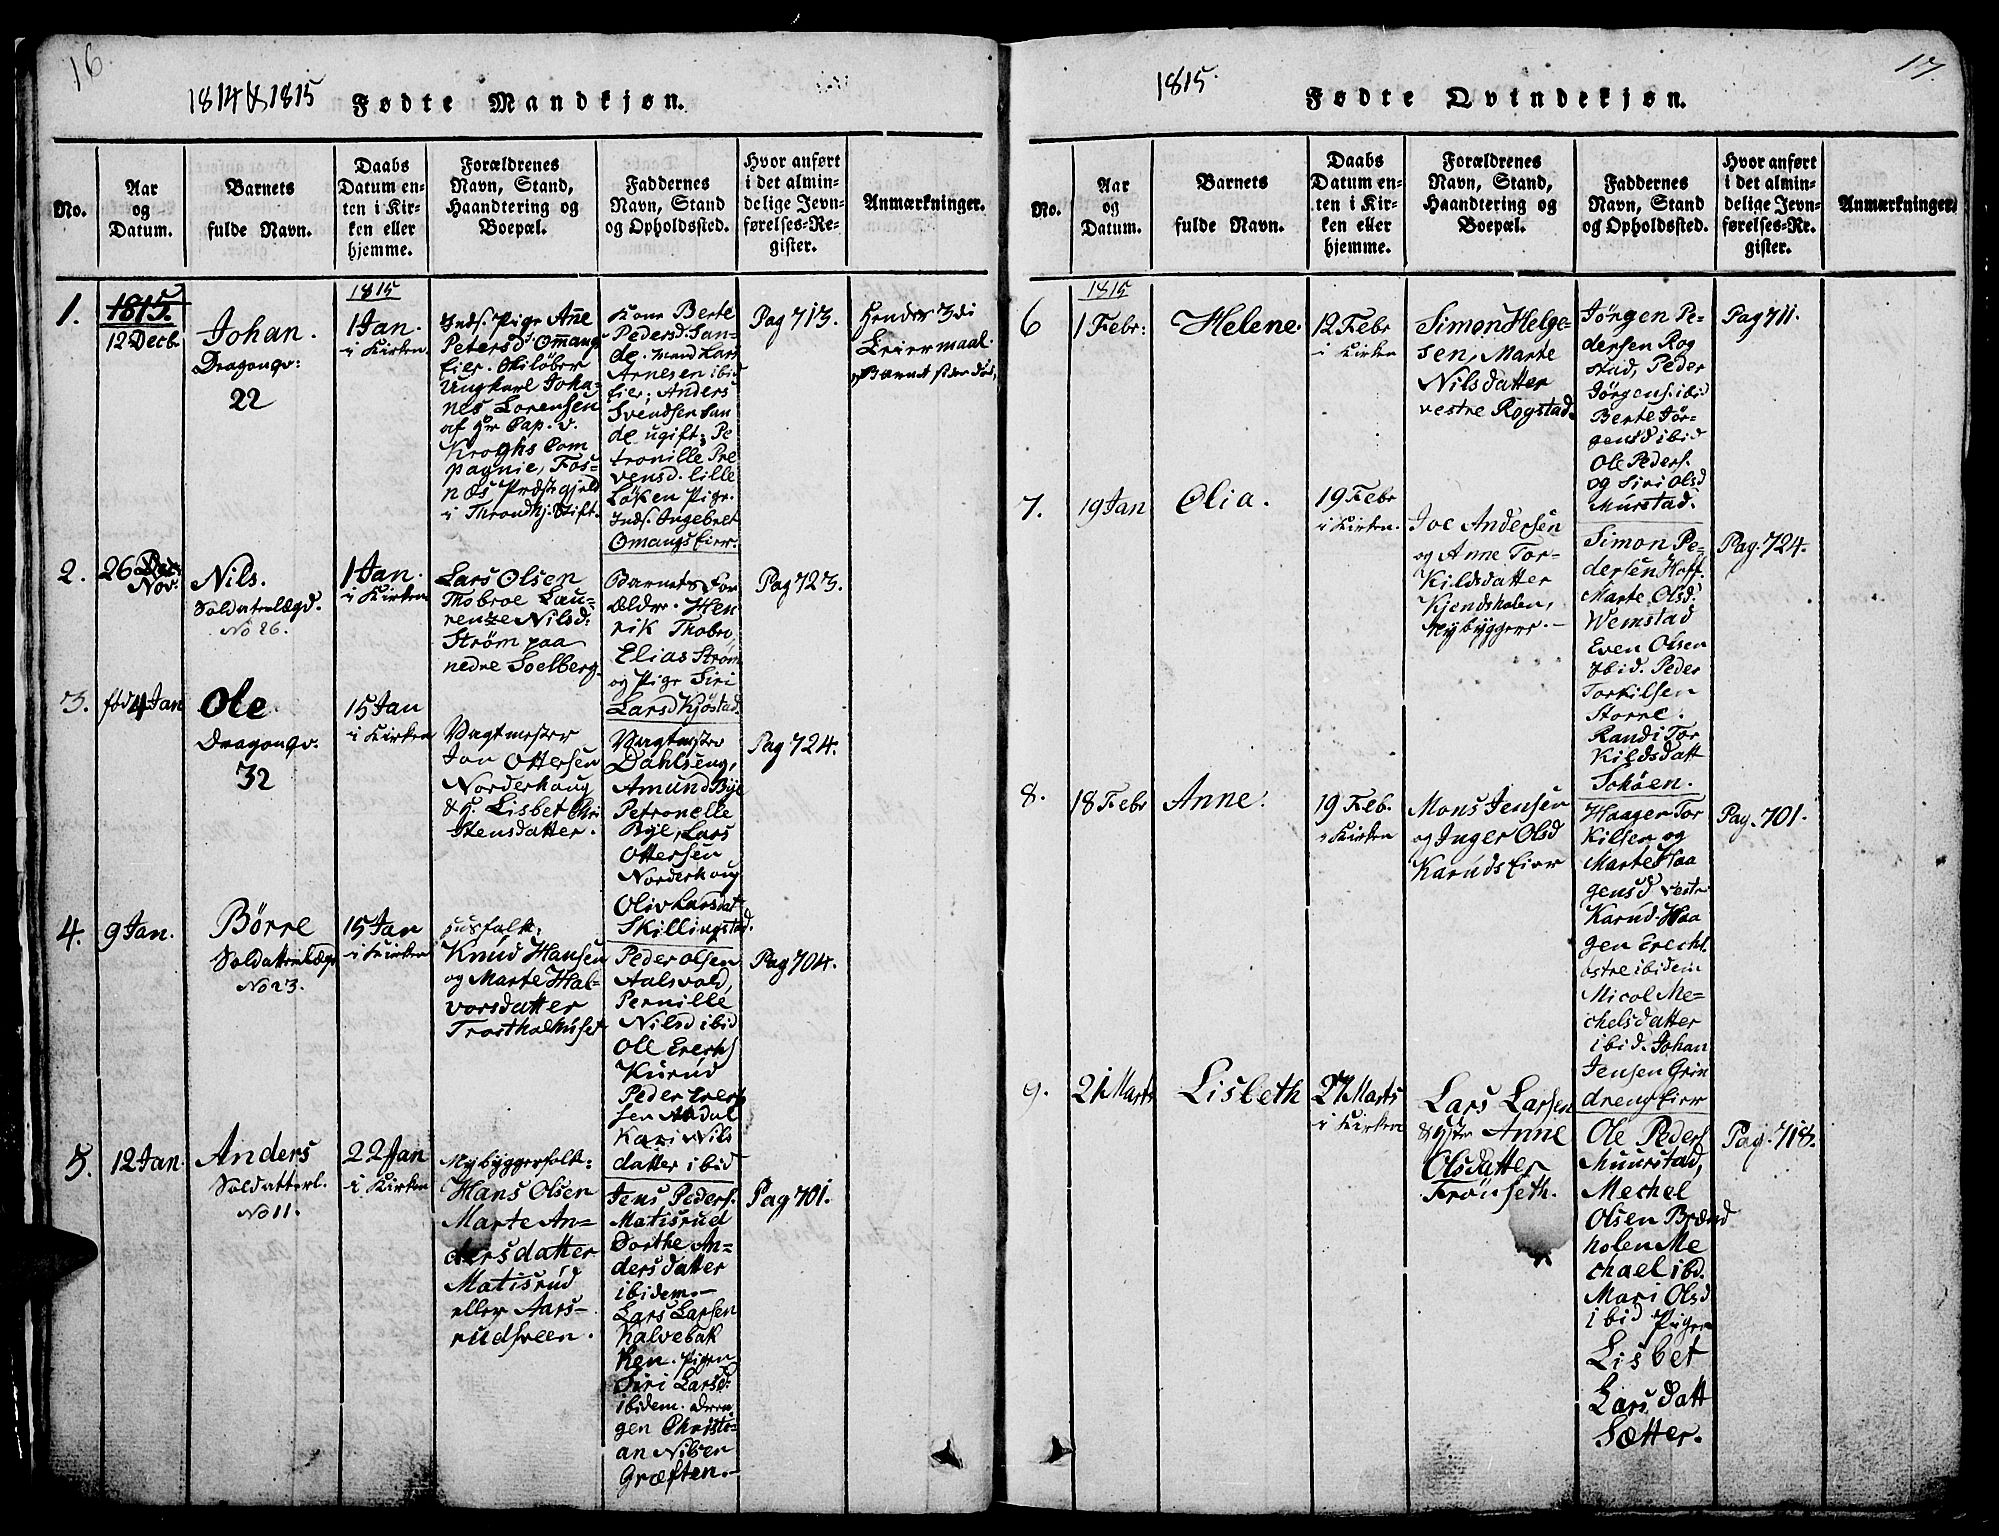 16.
1814 & 1815
Fødte Mandkjøn.
No.
Aar
og
Datum.
Barnets
fulde Navn.
Daabs
Datum en-
ten i Kir-
ken eller
hjemme.
Forældrenes
Navn, Stand,
Haandtering og
Boepæl.
Faddernes
Navn, Stand
og Opholdssted.
Hvor anført
i det almin-
delige Jevn-
førelses-Re-
gister.
Anmærkninger.
1.
1815.
12 Decb.
Johan.
Dragonqv:
22
1815
1 Jan.
i Kirken.
Inds. Pige Ane
Petersd Omang
Eier. Skiløber
Ungkarl Joha-
nes Lorensen
af Hr Cap. v.
Kroghs Com
pagnie, Fos-
næs Præstegjeld
i Throndhj. Stift.
Kone Berte
Pedersd. San-
de. Mand Lars
Arnesen ibid
Eier; Anders
Svendsen San
de ugift; Pe
tronille Pre
vensd. lille
Løken Pige.
Inds. Ingebret
Omangs Eier.
Pag 713.
Hendes 3di
Leiermaal.
2.
26 Dec:
Nov:
Nils.
Soldaterlægd.
No 26.
1 Jan.
i Kirken
Lars Olsen
Thobroe Lau-
rentze Nilsd:
Strøm paa
nedre Soelberg.
Barnets For
ældre. Hen
rik Thobro,
Elias Strøm
og Pige Siri
Larsd Kjøstad.
Pag 723.
3.
fød 4 Jan
Ole
Dragonqv.
32
15 Jan
i Kirken
Vagtmester
Jon Ottersen
Norderhoug
& H. Lisbet Chri
stensdatter.
Vagtmester
Dahlseng,
Amund Bye
Petronelle
Bye, Lars
Ottersen
Norderhoug
Oliv Larsdat
Skillingstad.
Pag 724.
4.
9 Jan.
Børre
Soldatterlægd
No 23.
15 Jan
i Kirken
Husfolk:
Knud Hansen
og Marte Hal-
vorsdatter
Trostholhuset
Peder Olsen
Aalsvold,
Pernille
Nilsd ibid
Ole Erechs
Kurud
Peder Erech
sen Aldal
Kari Nils
datter ibid
Pag 704.
5.
12 Jan.
Anders
Soldatterl.
No 11.
22 Jan
i Kirken
Nybyggerfolk:
Hans Olsen
Marte An-
dersdatter
Matisrud
eller Aars-
rudsveen.
Jens Peders.
Matisrud
Dorthe An-
dersdatter
ibidem.-
Lars Larsen
Kalvebak
ken. Pigen
Siri Larsd:
ibidem. Dren
gen Christi-
an Nilsen
Græften.-
Pag 701.
17.
1815.
Fødte Qvindekjøn.
No.
Aar
og
Datum.
Barnets
fulde Navn.
Daabs
Datum en-
ten i Kir-
ken eller
hjemme.
Forældrenes
Navn, Stand,
Haandtering og
Boepæl.
Faddernes
Navn, Stand
og Opholdssted.
Hvor anført
i det almin-
delige Jevn-
førelses-Re-
gister.
Anmærkninger.
6
1815
1 Febr:
Helene.
12 Febr
i Kirken
Simon Helge-
sen, Marte
Nilsdatter
vestre Rogstad.
Jørgen Pe-
dersen Rog
stad, Peder
Jørgens. ibid
Berte Jør-
gensd ibid
Ole Peders.
og Siri Olsd
Murstad.
Pag 711.
7.
19 Jan
Olia.
19 Febr
i Kirken.
Joe Andersen
og Anne Tor-
kildsdatter
Kjendsholen,
Nybyggere.-
Simon Pe-
dersen Hoff.
Marte Olsd:
Wemstad
Even Olsen
ibid. Peder
Torkilsen
Storre.
Randi Tor
kildsdatt
Schøen.
Pag. 724.
8.
18 Febr
Anne.
19 Feb.
i Kirken
Mons Jensen
og Inger Olsd
Karuds Eier
Haagen Tor
kilsen og
Marte Haa
gensd vestre
Karud. Haa
gen Erechs.
østre ibidem
Micol Me-
chelsdatter
ibid. Johan
Jensen Grin
dreng Eier
Pag. 701.
9.
21 Marts
Lisbeth
27 Marts
i Kirken
Lars Larsen
& Hstr Anne
Olsdatter
Frønseth.
Ole Peders
Muurstad,
Mechel
Olsen Brænd
holen Me
chael ibd.
Mari Olsd
ibid Pigen
Lisbet
Larsdatt
Sætter.
Pag. 718.